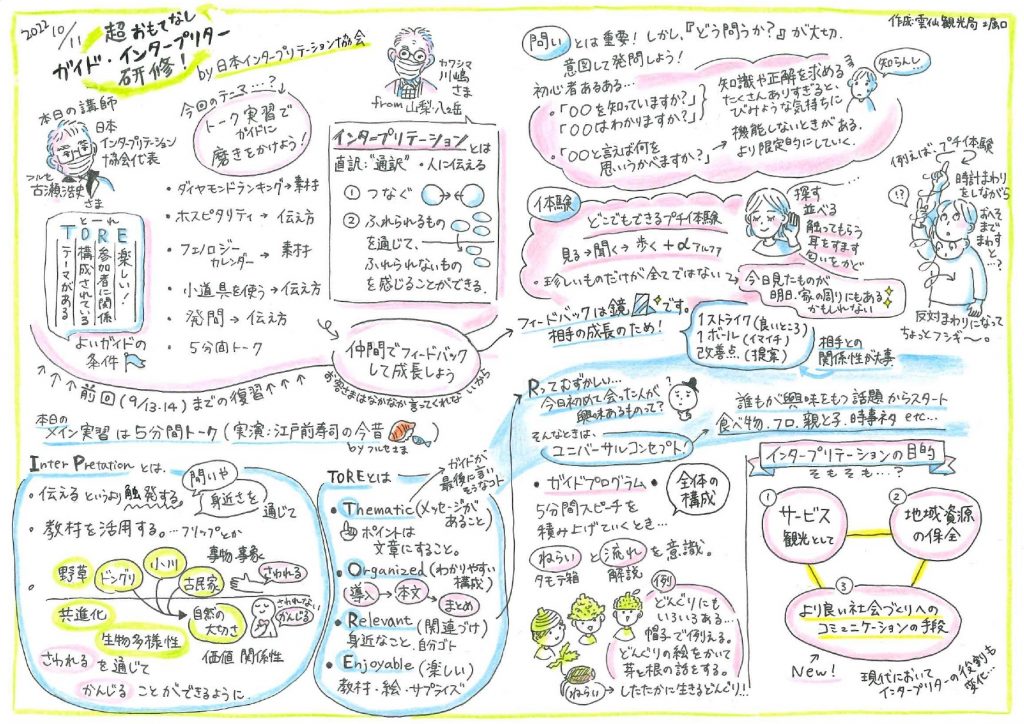 2022 10/11
超おもてなし
ガイド・インタープリター
研修!
by 日本インタープリテーション協会
カワシマ
川嶋
さま
from 山梨・八ヶ岳
本日の講師
日本
インタープリテーション
協会代表
フルセ
古瀬浩史
さま
今回のテーマ…?
トーク実習で
ガイドに
磨きをかけよう!
・ダイヤモンドランキング→素材
・ホスピタリティ→伝え方
・フェノロジー
カレンダー→素材
・小道具を使う→伝え方
・発問→伝え方
・5分間トーク
とーれ
TORE
楽しい!
参加者に関係
構成されている
テーマがある
よいガイドの
条件
↑↑↑前回(9/13.14)までの復習↑↑↑↑
インタープリテーションとは
直訳:“通訳”・人に伝える
① つなぐ
② ふれられるもの
を通じて、
ふれられないもの
を感じることができる。
仲間でフィードバック
して成長しよう
お客さまはなかなか言ってくれないから
本日の
メイン実習は5分間トーク(実演:江戸前寿司の今昔
by フルセさま
Inter Pretationとは、
・伝えるというより触発する
問いや
身近さを
通じて
・教材を活用する。…フリップとか
事物・事象
野草
ドングリ
小川
古民家
さわれる
共進化
生物多様性
自然の
大切さ
さわれない
かんじる
価値 関係性
さわれるを通じて
かんじることができるように
TOREとは
ガイドが
最後に言い
そうなコト
・Thematic(メッセージが
あること)
ポイントは
文章にすること。
・Organized(わかりやすい
構成)
導入→本文→まとめ
・Relevant(関連づけ)
身近なこと、自分ゴト
・Enjoyable(楽しい)
教材・絵・サプライズ
作成:雲仙観光局:堀口
問いとは重要!しかし、『どう問うか?』が大切.
意図して発問しよう!
初心者あるある…
・「〇〇を知っていますか?」
「〇〇はわかりますか?」
知識や正解を求める
たくさんありすぎると
びみょうな気持ちに
機能しないときがある.
・「〇〇と言えば何を
思いうかべますか?」→より限定的にしていく.
知らんし
体験
どこでもできるプチ体験
見る→聞く→歩く+αアルファ
・珍しいものだけが全てではない→今日見たものが
明日.家の周りにもある
かもしれない
探す
並べる
触ってもらう
耳をすます
匂いをかぐ
例えば…プチ体験
時計まわり
をしながら
おへそ
まで
まわすと
…?
!?
反対まわりになって
ちょっとフシギ〜。
フィードバックは鏡です。
相手の成長のため!
1ストライク(良いところ)
1ボール(イマイチ)
改善点…(提案)
相手との
関係性が大事
Rってむずかしい…
今日初めて会った人が
興味あるものって?
そんなときは、
ユニバーサルコンセプト
誰もが興味をもつ話題からスタート
食べ物、フロ、親と子、時事ネタ etc…
・ガイドプログラム・
全体の
構成
5分間スピーチを
積み上げていくとき…
ねらいと流れを意識。
タモテ箱
解説
例
どんぐりにも
いろいろある…
帽子で例える。
どんぐりの絵をかいて
芽と根の話をする。
ねらい→したたかに生きるどんぐり!…
インタープリテーションの目的
そもそも…?
① サービス
観光として
② 地域資源
の保全
③
より良い社会づくりへの
コミュニケーションの手段
New!
現代において
インタープリターの役割も
変化…